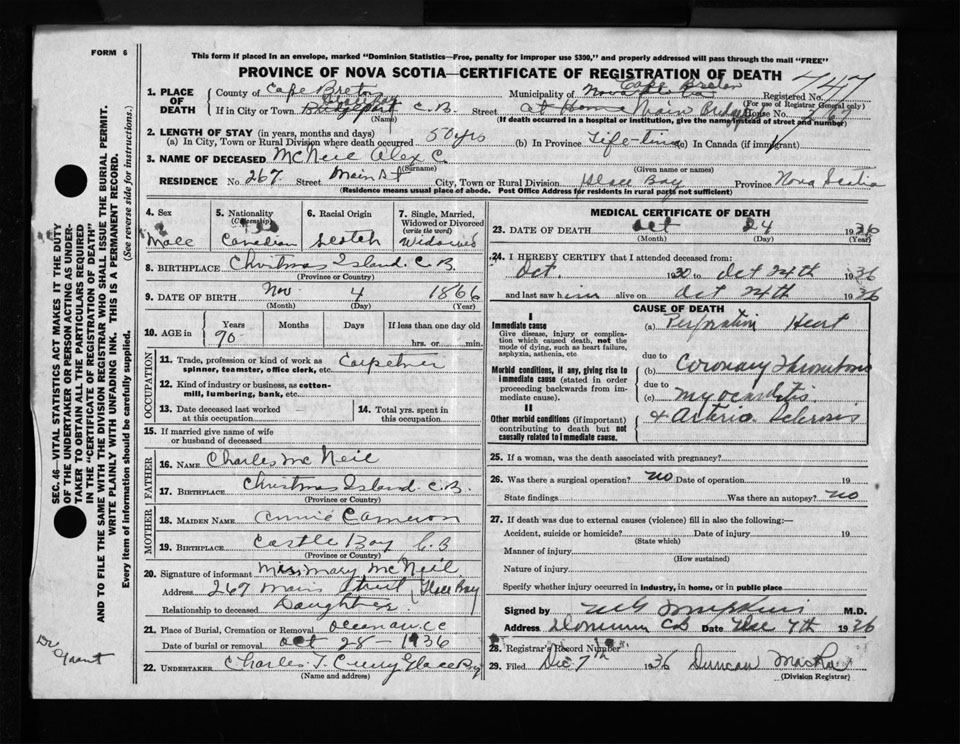 FORM 6
This form if placed in an envelope, marked "Dominion Statistics—Free, penalty for improper use $300," and properly addressed will pass through the mail "FREE"
PROVINCE OF NOVA SCOTIA—CERTIFICATE OF REGISTRATION OF DEATH
1. PLACE OF DEATH County of Cape Breton Municipality of Cape Breton Registered No. 747
(For use of Registrar General only)
If in City or Town Bridgeport C.B. Street at Home Main House No. 267
(Name) (If death occurred in a hospital or institution, give the name instead of street and number)
2. LENGTH OF STAY (in years, months and days)
(a) In City, Town or Rural Division where death occurred 50 yrs (b) In Province Life-time (c) In Canada (if immigrant)
3. NAME OF DECEASED McNeil Alex C.
(Surname) (Given name or names)
RESIDENCE No. 267 Street Main St City, Town or Rural Division Glace Bay Province Nova Scotia
(Residence means usual place of abode. Post Office Address for residents in rural parts not sufficient)
4. Sex Male
5. Nationality (Citizenship) Canadian
6. Racial Origin Scotch
7. Single, Married, Widowed or Divorced (write the word) Widowed
8. BIRTHPLACE Christmas Island C.B.
(Province or Country)
9. DATE OF BIRTH Nov 4 1866
(Month) (Day) (Year)
10. AGE in Years Months Days If less than one day old
70 hrs. or min.
OCCUPATION
11. Trade, profession or kind of work as spinner, teamster, office clerk, etc. Carpenter
12. Kind of industry or business, as cotton-mill, lumbering, bank, etc.
13. Date deceased last worked at this occupation
14. Total yrs. spent in this occupation
15. If married give name of wife or husband of deceased
FATHER
16. NAME Charles McNeil
17. BIRTHPLACE Christmas Island C.B.
(Province or Country)
MOTHER
18. MAIDEN NAME Annie Cameron
19. BIRTHPLACE Castle Bay C.B
(Province or Country)
20. Signature of informant Miss Mary McNeil
Address 267 Main Street Glace Bay
Relationship to deceased Daughter
21. Place of Burial, Cremation or Removal
Date of burial or removal Oct 28-1936
22. UNDERTAKER Charles T. Curry Glace Bay
(Name and address)
MEDICAL CERTIFICATE OF DEATH
23. DATE OF DEATH Oct 24 1936
(Month) (Day) (Year)
24. I HEREBY CERTIFY that I attended deceased from:
Oct. 1930 to Oct 24th 1936
and last saw him alive on Oct 24th 1936
CAUSE OF DEATH
I
Immediate cause
Give disease, injury or complication which caused death, not the mode of dying, such as heart failure, asphyxia, asthenia, etc
(a) Perforation Heart
due to
Morbid conditions, if any, giving rise to immediate cause (stated in order proceeding backwards from immediate cause).
(b) Coronary Thrombosis
due to
(c) Myocarditis
II
Other morbid conditions (if important) contributing to death but not causally related to immediate cause.
& Arterio Sclerosis
25. If a woman, was the death associated with pregnancy?
26. Was there a surgical operation? No Date of operation 19
State findings Was there an autopsy? No
27. If death was due to external causes (violence) fill in also the following:—
Accident, suicide or homicide? Date of injury 19
(State which)
Manner of injury
(How sustained)
Nature of injury
Specify whether injury occurred in industry, in home, or in public place
Signed by M.D.
Address Dominion CB Date Dec 7th 1936
28. Registrar's Record Number
29. Filed Dec 7th 1936 Duncan
(Division Registrar)
SEC. 46—VITAL STATISTICS ACT MAKES IT THE DUTY
OF THE UNDERTAKER OR PERSON ACTING AS UNDER-
TAKER TO OBTAIN ALL THE PARTICULARS REQUIRED
IN THE "CERTIFICATE OF REGISTRATION OF DEATH"
AND TO FILE THE SAME WITH THE DIVISION REGISTRAR WHO SHALL ISSUE THE BURIAL PERMIT.
WRITE PLAINLY WITH UNFADING INK. THIS IS A PERMANENT RECORD.
Every item of information should be carefully supplied. (See reverse side for instructions.)